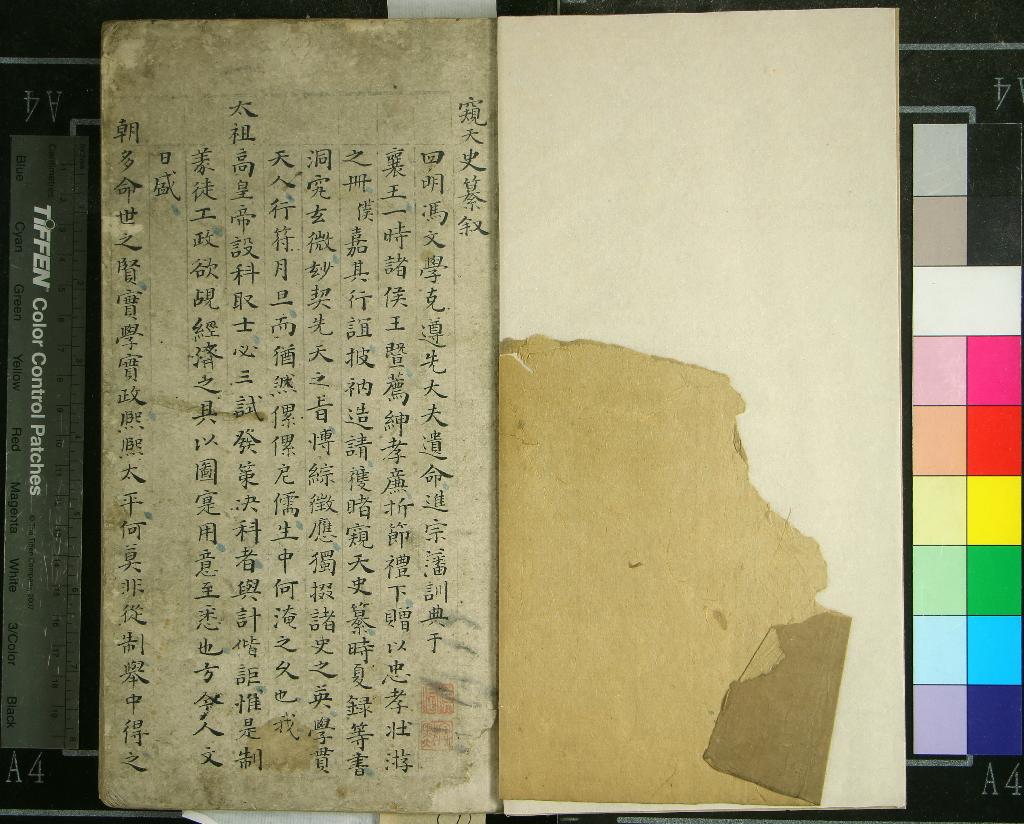 窺天史纂叙
四明馮文學克遵先大夫遺命進宗藩訓典于
襄王一時諸侯王暨薦紳孝廉折節禮下贈以忠孝壯游
之册僕嘉其行誼披衲造請獲睹窺天史纂時夏録等書
洞究玄微玅契先天之旨博綜徵應獨掇諸史之英學貫
天人行符月旦而猶然儽儽尼儒生中何淹之久也我
太祖高皇帝設科取士必三試發策决科者與計偕詎惟是制
義徒工政欲覘經濟之具以圖寔用意至悉也方今人文
日盛
朝多命世之賢實學實政熙熙太平何莫非從制舉中得之
TIFFEN Color Control Patches
© The Tiffen Company, 2007
Centimetres
Blue Cyan Green Yellow Red Magenta White 3/Color Black
A4
A4
A4
A4